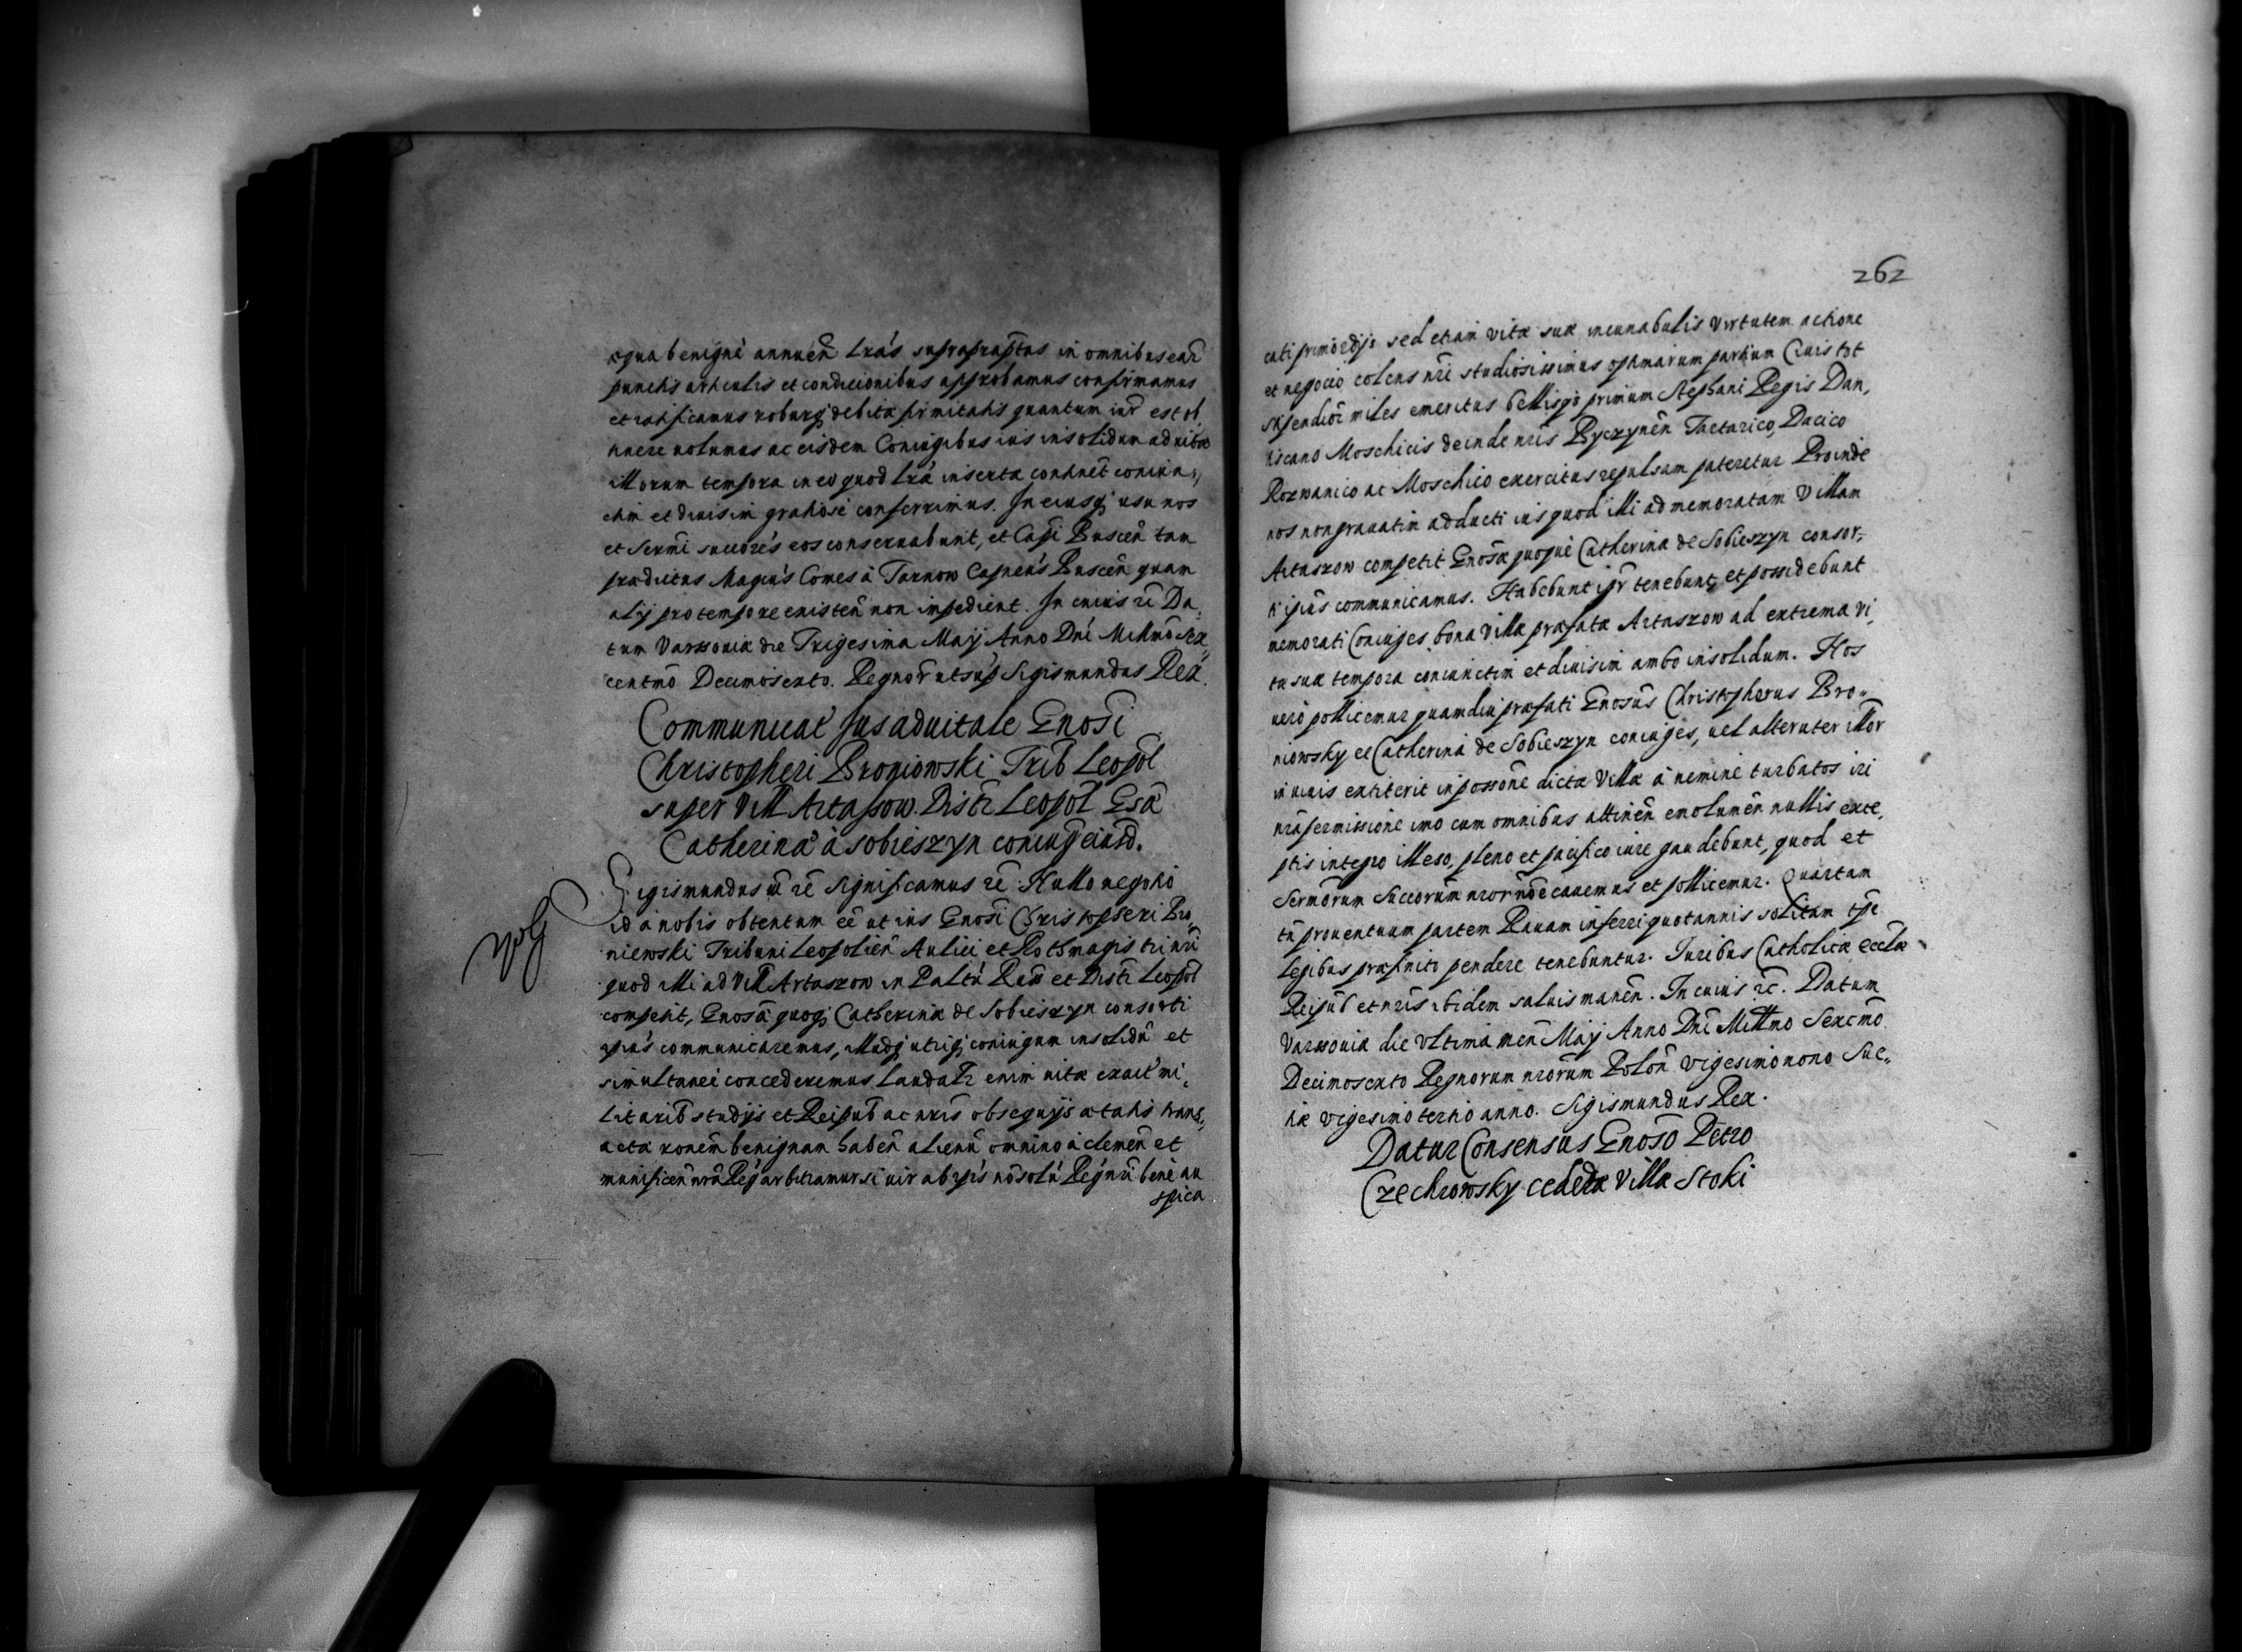 æqua benignè annuen̄ Lrás supraprāptas in omnibus ear̄
punctis articulis et condicionibus approbamus confirmamus
et ratificamus roburq; debitæ firmitatis quantum iur̄ est ob,
tinere volumus ac eisdem Coniugibus ius insolidum ad vitæ
illorum tempora in eo quod Lrá inserta continet coniun,,
ctm et divisim gratiosè conferrimus. In eiusq; usu nos
et Sermi succorés eos conservabunt, et Capi Buscen̄ tam
prædictus Magcús Comes à Tarnow Capneús Buscen̄ quam
alij pro tempore existen̄ non impedient. In cuius rē Da,
tum Varssoviæ die Trigesima Maij Anno Dnī Millmō Sex,,
centmō Decimosexto. Regnor̄ ut sup̄ Sigismundus Rex.
Communicat Jus advitale Gnosi
Christopheri Broniowski Trib Leopol
super Vill Artassow. Distr Leopol Gsæ
Catherinæ à Sobieszyn coniug eiusd.
Sigismundus iii rē Significamus rē Nullo negotio
id à nobis obtentum eē ut ius Gnosi Christopheri Bro,,
niewski Tribuni Leopolien̄ Aulici et Rothmagistri nrī
quod illi ad Vill Artaszow in Paltú Russ et Distr Leopol
competit, Gnosæ quoq; Catherinæ de Sobieszyn consorti
ipsiús communicaremus, illudq; utriq; coniugum insolidū et
simultaneè concederemus Laudatr enim vitæ exact mi,
litarib studijs et Reipub ac nrīs obsequijs ætatis trans,,
actæ ronēm benignam haben̄ alienū omnino à clemen̄ et
munificen̄ nrā Rég arbitramur si vir ab ipsís nō solú Régnrī bene au
spica
262
cati primordijs sed etiam vitæ suæ incunabulis virtutem actione
et negocio colens nrī studiosissimus optimarum partium Civis tot
stipendior̄ miles emeritus bellisq; primum Stephani Regis Dan,
tiscano Moschicis deinde nrīs Byczynēn Tactarico, Dacico
Rozwanico ac Moschico exercitus repulsam pateretur Proinde
nos non gravatim adducti ius quod illi ad memoratam Villam
Artaszow competit Gnosæ quoquè Catherinæ de Sobieszyn consor,,
ti ipsiūs communicamus. Habebunt ipr̄ tenebunt et possidebunt
memorati Coniuges bona Villæ præfatæ Artaszow ad extrema vi,
tæ suæ tempora coniunctim et divisim ambo insolidum. Nos
verò pollicemur quamdiu præfati Gnosūs Christopherus Bro,,
niowsky et Catherina de Sobieszyn coniuges, vel alteruter illor
in vivis extiterit in possonē dictæ Villæ à nemine turbatos iri
nrā permissione imo cum omnibus attinen̄ emolumēn nullis exce,
ptis integro illeso, pleno et pacifico iure gaudebunt, quod et
Sermōrum Succorūm nror nōē cavemus et pollicemur. Quartam
tn̄ proventuum partem Ravam inferri quotannis solitam tpe
legibus præfinito pendere tenebuntur. Juribus Catholicæ eccleæ
Reipub et nrīs ibidem salvis manēn. In cuius rē. Datum
Varssoviæ die ultima men̄ Maij Anno Dnī Millmo Sexcmō
Decimosexto Regnorum nrōrum Polon̄ vigesimonono Sue,,
tiæ vigesimotertio anno. Sigismundus Rex.
Datur Consensus Gnoso Petro
Czechrowsky cedere Villa Stoki